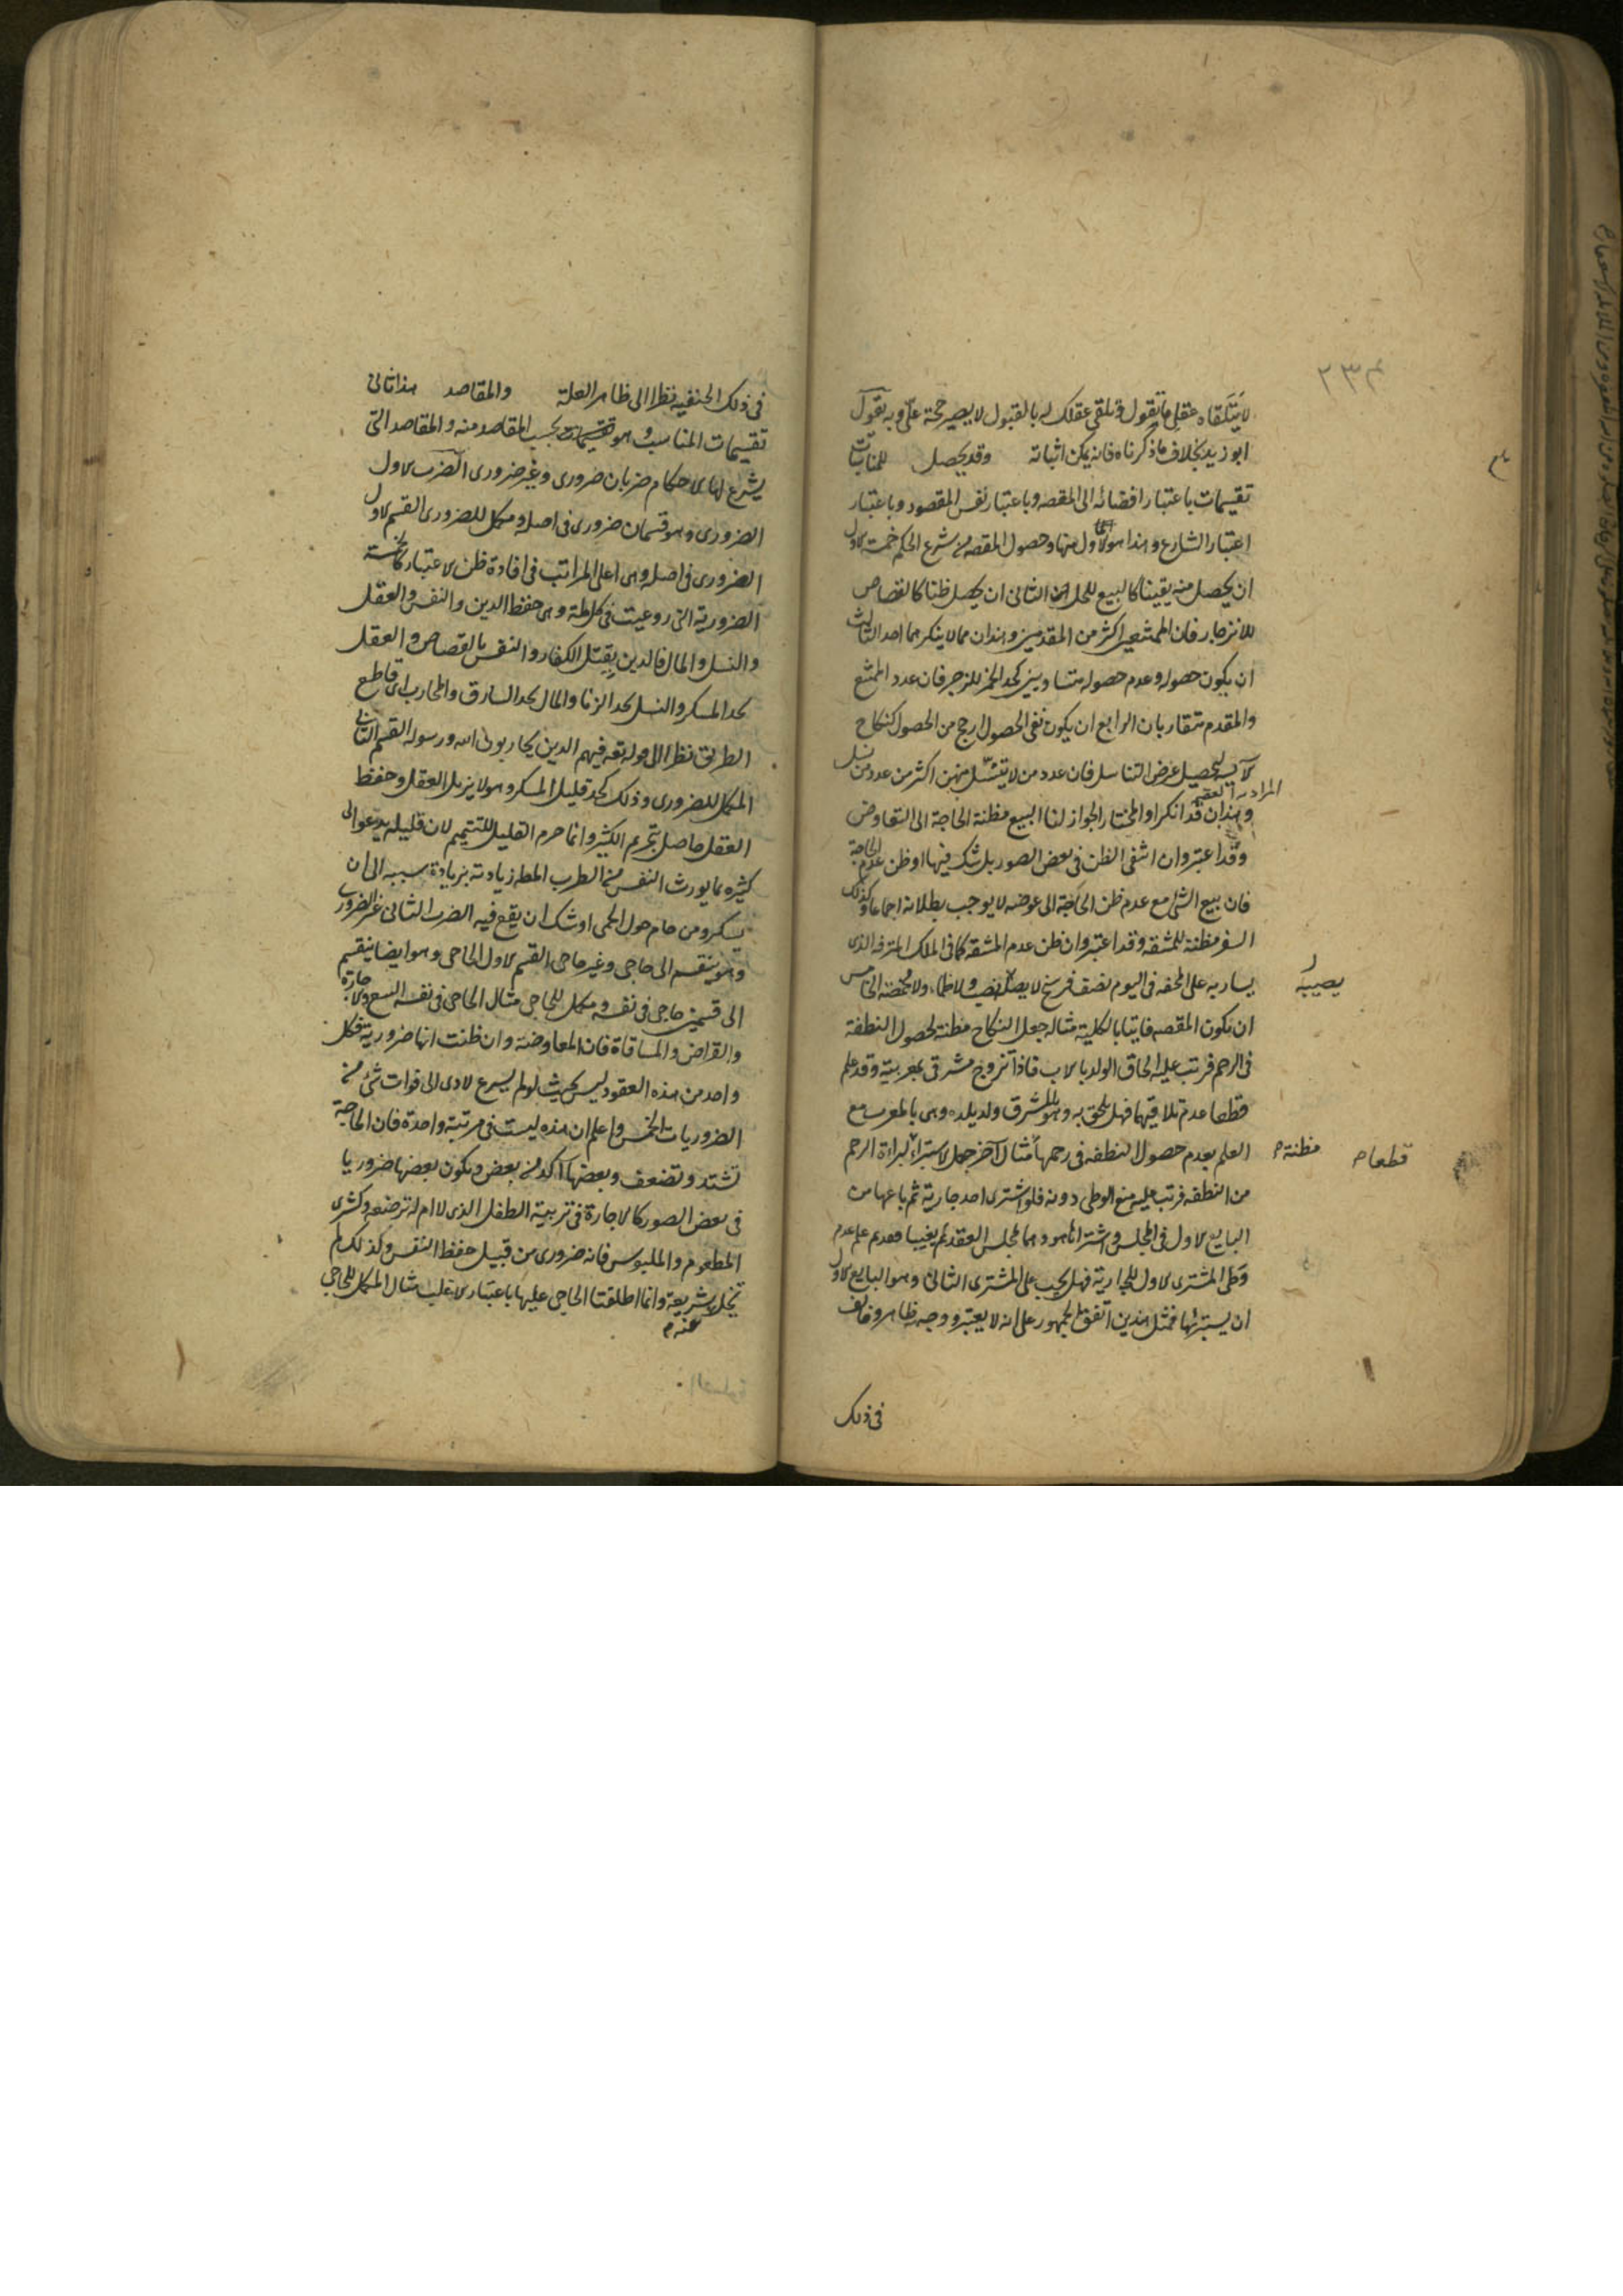 ٢٣٤
لا يتلقاه عقلي ما تقول وتلقي عقلك له بالقبول لا يصير حجة علي وبه يقول
ابو زيد بخلاف ما ذكرناه فانه يمكن اثباته وقد يحصل للمناسبات
تقسيمات باعتبار افضائه الى المقصد وباعتبار نفس المقصود وباعتبار
اعتبار الشارع وهذا هو الاول منها وحصول المقصد من شرع الحكم خمسة الاول
ان يحصل منه يقينا كالبيع للحل الثاني ان يحصل ظنا كالقصاص
للانزجار فان الممتنعين اكثر من المقدمين وهذان مما لا ينكرهما احد الثالث
ان يكون حصوله وعدم حصوله متساويين كحد الخمر للزجر فان عدد الممتنع
والمقدم متقاربان الرابع ان يكون نفي الحصول ارجح من الحصول كنكاح
الآيسة لتحصيل غرض التناسل فان عدد من لا يتنسل منهن اكثر من عدد من نسل
المراد به العقيم
وهذان قد انكرا والمختار الجواز لنا البيع مظنة الحاجة الى التعاوض
وقد اعتبر وان انتفى الظن في بعض الصور بل شك فيها او ظن عدم الحاجة
فان بيع الشئ مع عدم ظن الحاجة الى عوضه لا يوجب بطلانه اجماعا وكذلك
السفر مظنة للمشقة وقد اعتبر وان ظن عدم المشقة كما في الملك المترفه الذي
يسار به على المحفة في اليوم نصف فرسخ لا يصيبه نصب ولا ظماء ولا مخمصة الخامس
يصيبه
ان يكون المقصد فايتا بالكلية مثاله جعل النكاح مظنة لحصول النطفة
في الرحم فرتب عليه الحاق الولد بالاب فاذا تزوج مشرقي بمغربية وقد علم
قطعا عدم تلاقيهما فهل يلحق به وهو بالمشرق ولد يلده وهي بالمغرب مع
العلم بعدم حصول النطفة في رحمها مثال آخر جعل الاستبراء لبراءة الرحم
مظنة
قطعا
من النطفة فرتب عليه منع الوطي دونه فلو اشترى احد جارية ثم باعها من
البايع الاول في المجلس واشتراها هو وهما بمجلس العقد لم يغيبا فعدم علم عدم
وطي المشتري الاول للجارية فهل يجب على المشتري الثاني وهو البايع الاول
ان يستبرئها فمثل هذين اتفق الجمهور على انه لا يعتبر ووجهه ظاهر وخالف
في ذلك
في ذلك الحنفية نظرا الى ظاهر العلة والمقاصد هذا ثاني
تقسيمات المناسب وهو تقسيمات بحسب المقاصد منه والمقاصد التي
يشرع لها الاحكام ضربان ضروري وغير ضروري الضرب الاول
الضروري وهو قسمان ضروري في اصله ومكمل للضروري القسم الاول
الضروري في اصله وهي اعلى المراتب في افادة ظن الاعتبار كالخمسة
الضرورية التي روعيت في كل ملة وهي حفظ الدين والنفس والعقل
والنسل والمال فالدين بقتل الكفار والنفس بالقصاص والعقل
بحد المسكر والنسل بحد الزنا والمال بحد السارق والمحارب اي قاطع
الطريق نظرا الى قوله تعالى فيهم الذين يحاربون الله ورسوله القسم الثاني
المكمل للضروري وذلك كحد قليل المسكر وهو لا يزيل العقل وحفظ
العقل حاصل بتحريم الكثير وانما حرم القليل للتتميم لان قليله يدعو الى
كثيره بما يورث النفس من الطرب المطلوب زيادته بزيادة سببه الى ان
يسكر ومن حام حول الحمى اوشك ان يقع فيه الضرب الثاني غير الضروري
وهو ينقسم الى حاجي وغير حاجي القسم الاول الحاجي وهو ايضا ينقسم
الى قسمين حاجي في نفسه ومكمل للحاجي مثال الحاجي في نفسه البيع والاجارة
والقراض والمساقاة فان المعاوضة وان ظننت انها ضرورية فكل
واحد من هذه العقود ليس بحيث لو لم يشرع لادى الى فوات شئ من
الضروريات الخمس واعلم ان هذه ليست في مرتبة واحدة فان الحاجة
تشتد وتضعف وبعضها آكد من بعض ويكون بعضها ضروريا
في بعض الصور كالاجارة في تربية الطفل الذي لا ام له ترضعه وكشرى
المطعوم والملبوس فانه ضروري من قبيل حفظ النفس وكذلك لم
تخل شريعة وانما اطلقنا الحاجي عليها باعتبار الاغلب مثال المكمل للحاجي
عنه